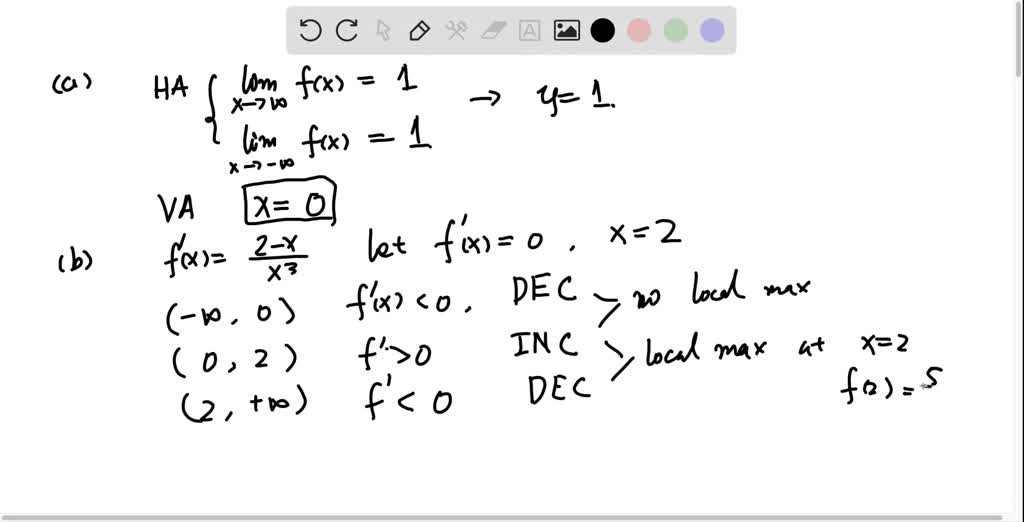 (a) HA { lim x→∞ f(x) = 1 → y = 1.
lim x→-∞ f(x) = 1
VA x = 0
(b) f'(x) = 2-x / x³ let f'(x) = 0 , x = 2
(-∞, 0) f'(x) < 0, DEC > no local max
(0, 2) f' > 0 INC > local max at x=2
(2, +∞) f' < 0 DEC f(2) = 5